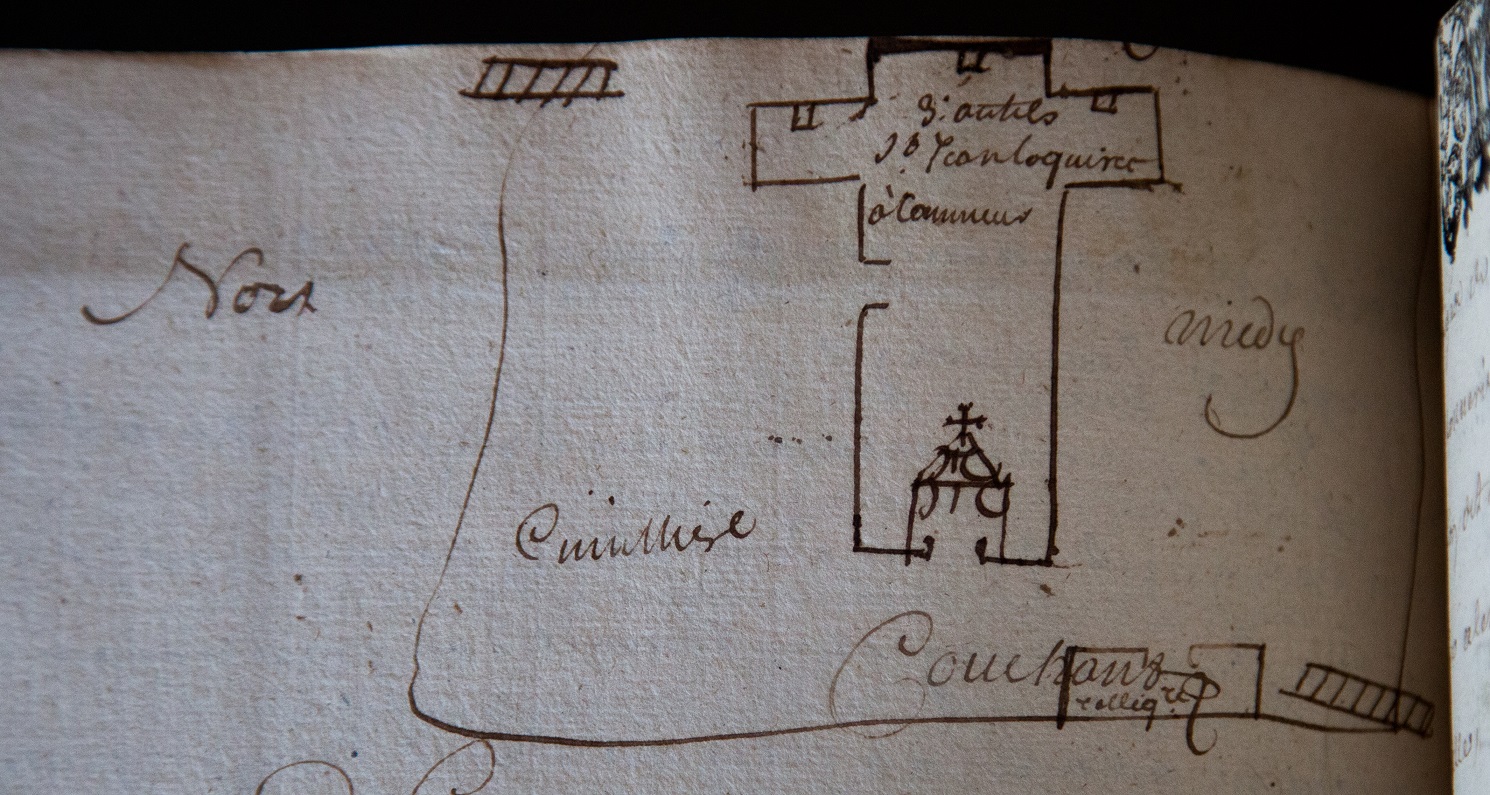 3: autels
St Jean loquirec
à Lanmeur
Nort
midy
Cimittiere
Couchant
relliqre